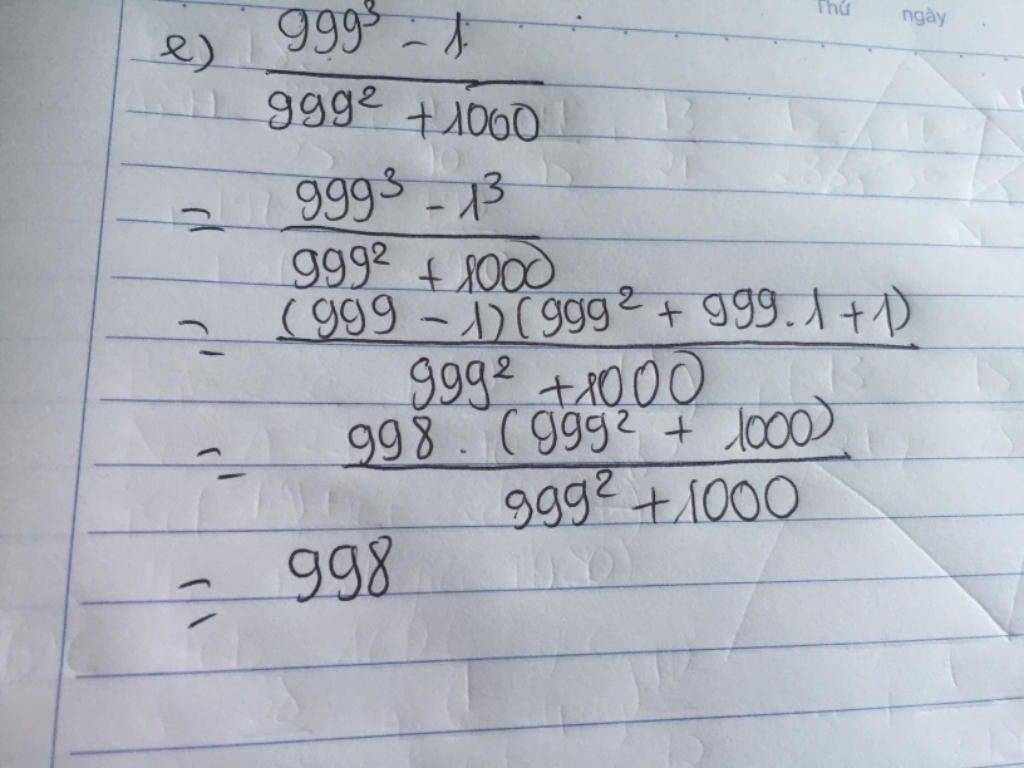 Thứ ngày
e) 999³ - 1
999² + 1000
= 999³ - 1³
999² + 1000
= (999 - 1)(999² + 999.1 + 1)
999² + 1000
= 998 . (999² + 1000)
999² + 1000
= 998